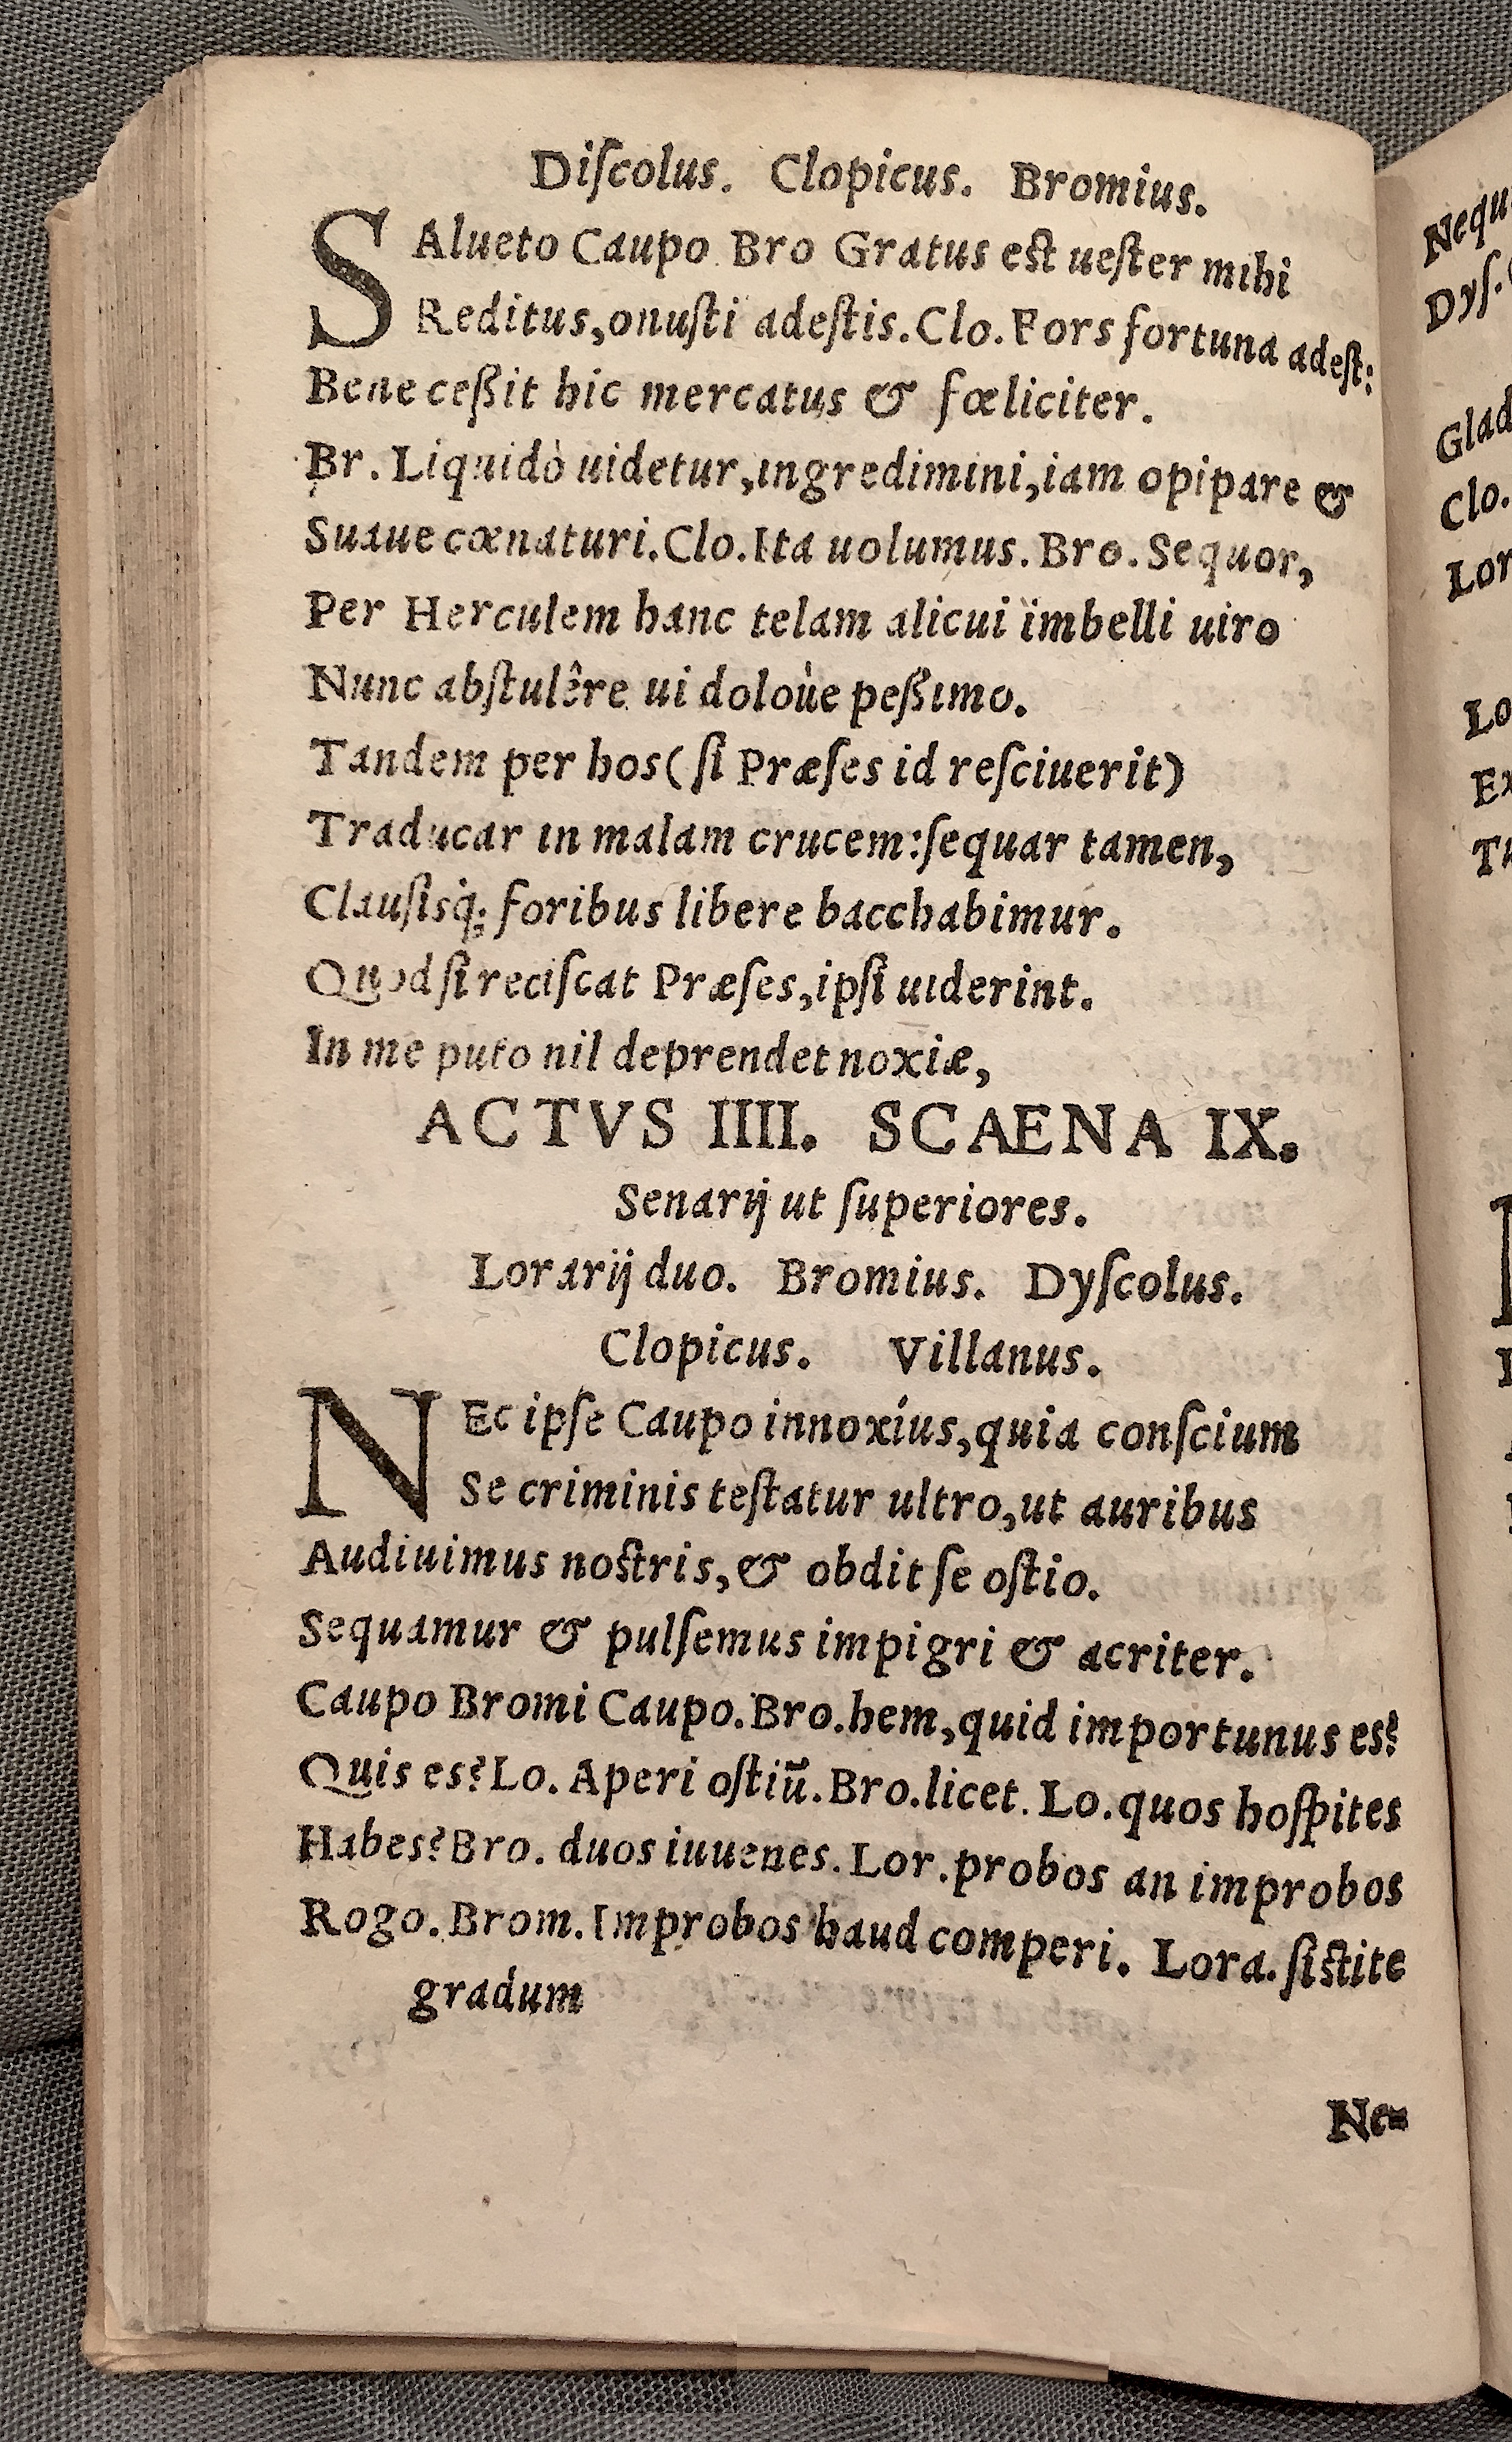 Diſcolus. Clopicus. Bromius.
SAlueto Caupo Bro Gratus eſt ueſter mihi
Reditus,onuſti adeſtis.Clo.Fors fortuna adeſt:
Bene ceßit hic mercatus & fœliciter.
Br. Liquidò uidetur,ingredimini,iam opipare &
Suaue cœnaturi.Clo.Ita uolumus.Bro.Sequor,
Per Herculem hanc telam alicui imbelli uiro
Nunc abſtulêre ui doloùe peßimo.
Tandem per hos( ſi Præſes id reſciuerit)
Traducar in malam crucem:ſequar tamen,
Clauſisq́; foribus libere bacchabimur.
Quod ſi reciſcat Præſes,ipſi uiderint.
In me puto nil deprendet noxiæ,
ACTVS IIII. SCAENA IX.
Senarij ut ſuperiores.
Lorarij duo. Bromius. Dyſcolus.
Clopicus. Villanus.
NEc ipſe Caupo innoxíus,quia conſcium
Se criminis teſtatur ultro,ut auribus
Audiuimus noſtris,& obdit ſe oſtio.
Sequamur & pulſemus impigri & acriter.
Caupo Bromi Caupo.Bro.hem,quid importunus es?
Quis es?Lo. Aperi oſtiū.Bro.licet. Lo.quos hoſpites
Habes?Bro. duos iuuenes. Lor.probos an improbos
Rogo.Brom.Improbos haud comperi. Lora.ſiſtite
gradum
Ne=
Dyſ.
Glad
Clo.
Lor
Lo
Ex